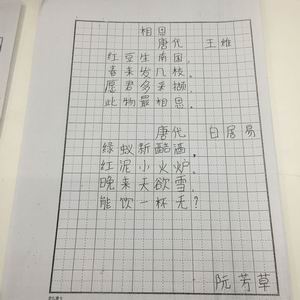 相思
唐代 王维
红豆生南国,
春来发几枝.
愿君多采撷,
此物最相思.
唐代 白居易
绿蚁新醅酒,
红泥小火炉.
晚来天欲雪,
能饮一杯无?
阮芳草